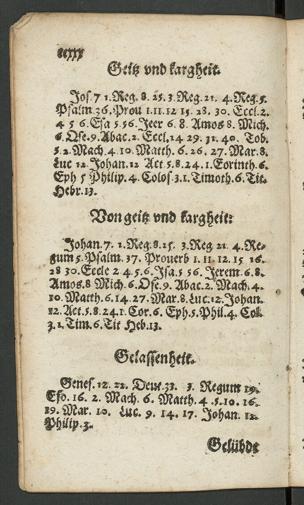 Geitz vnd kargheit.
Jos. 7 1. Reg. 8. 25. 3. Reg. 21. 4. Reg. 5.
Psalm 26. Prou 1. 11. 12 15. 28. 30. Eccl. 2.
4 5 6. Esa 5. 56. Jeer 6. 8. Amos 8. Mich.
6. Ose. 9. Abac. 2. Eccl, 14 29. 31. 40. Tob.
5. 2. Mach. 4. 10. Matth. 6. 26. 27. Mar. 8.
Luc 12. Johan. 12 Act 5. 8. 24. 1. Corinth. 6.
Eph 5 Philip. 4. Colos 3. 1. Timoth. 6. Tit.
Hebr. 13.
Von geitz vnd kargheit:
Johan. 7. 1. Reg. 8. 15. 3. Reg 21. 4. Re-
gum 5. Psalm. 37. Prouerb 1. 11. 12. 15 16.
28 30. Eccle 2 4. 5. 6. Jsa. 5 56. Jerem. 6. 8.
Amos. 8 Mich. 6. Ose. 9. Abac. 2. Mach. 4.
10. Matth. 6. 14. 27. Mar. 8. Luc. 12. Johan.
12. Act. 5. 8. 24. 1. Cor. 6. Eph. 5. Phil. 4. Col.
3. 1. Tim. 6. Tit Heb. 13.
Gelassenheit.
Genes. 12. 22. Deut. 33. 3. Regum 19.
Eso. 16. 2. Mach. 6. Matth. 4. 5. 10. 16.
19. Mar. 10. Luc. 9. 14. 17. Johan. 12.
Philip. 3.
Gelübde